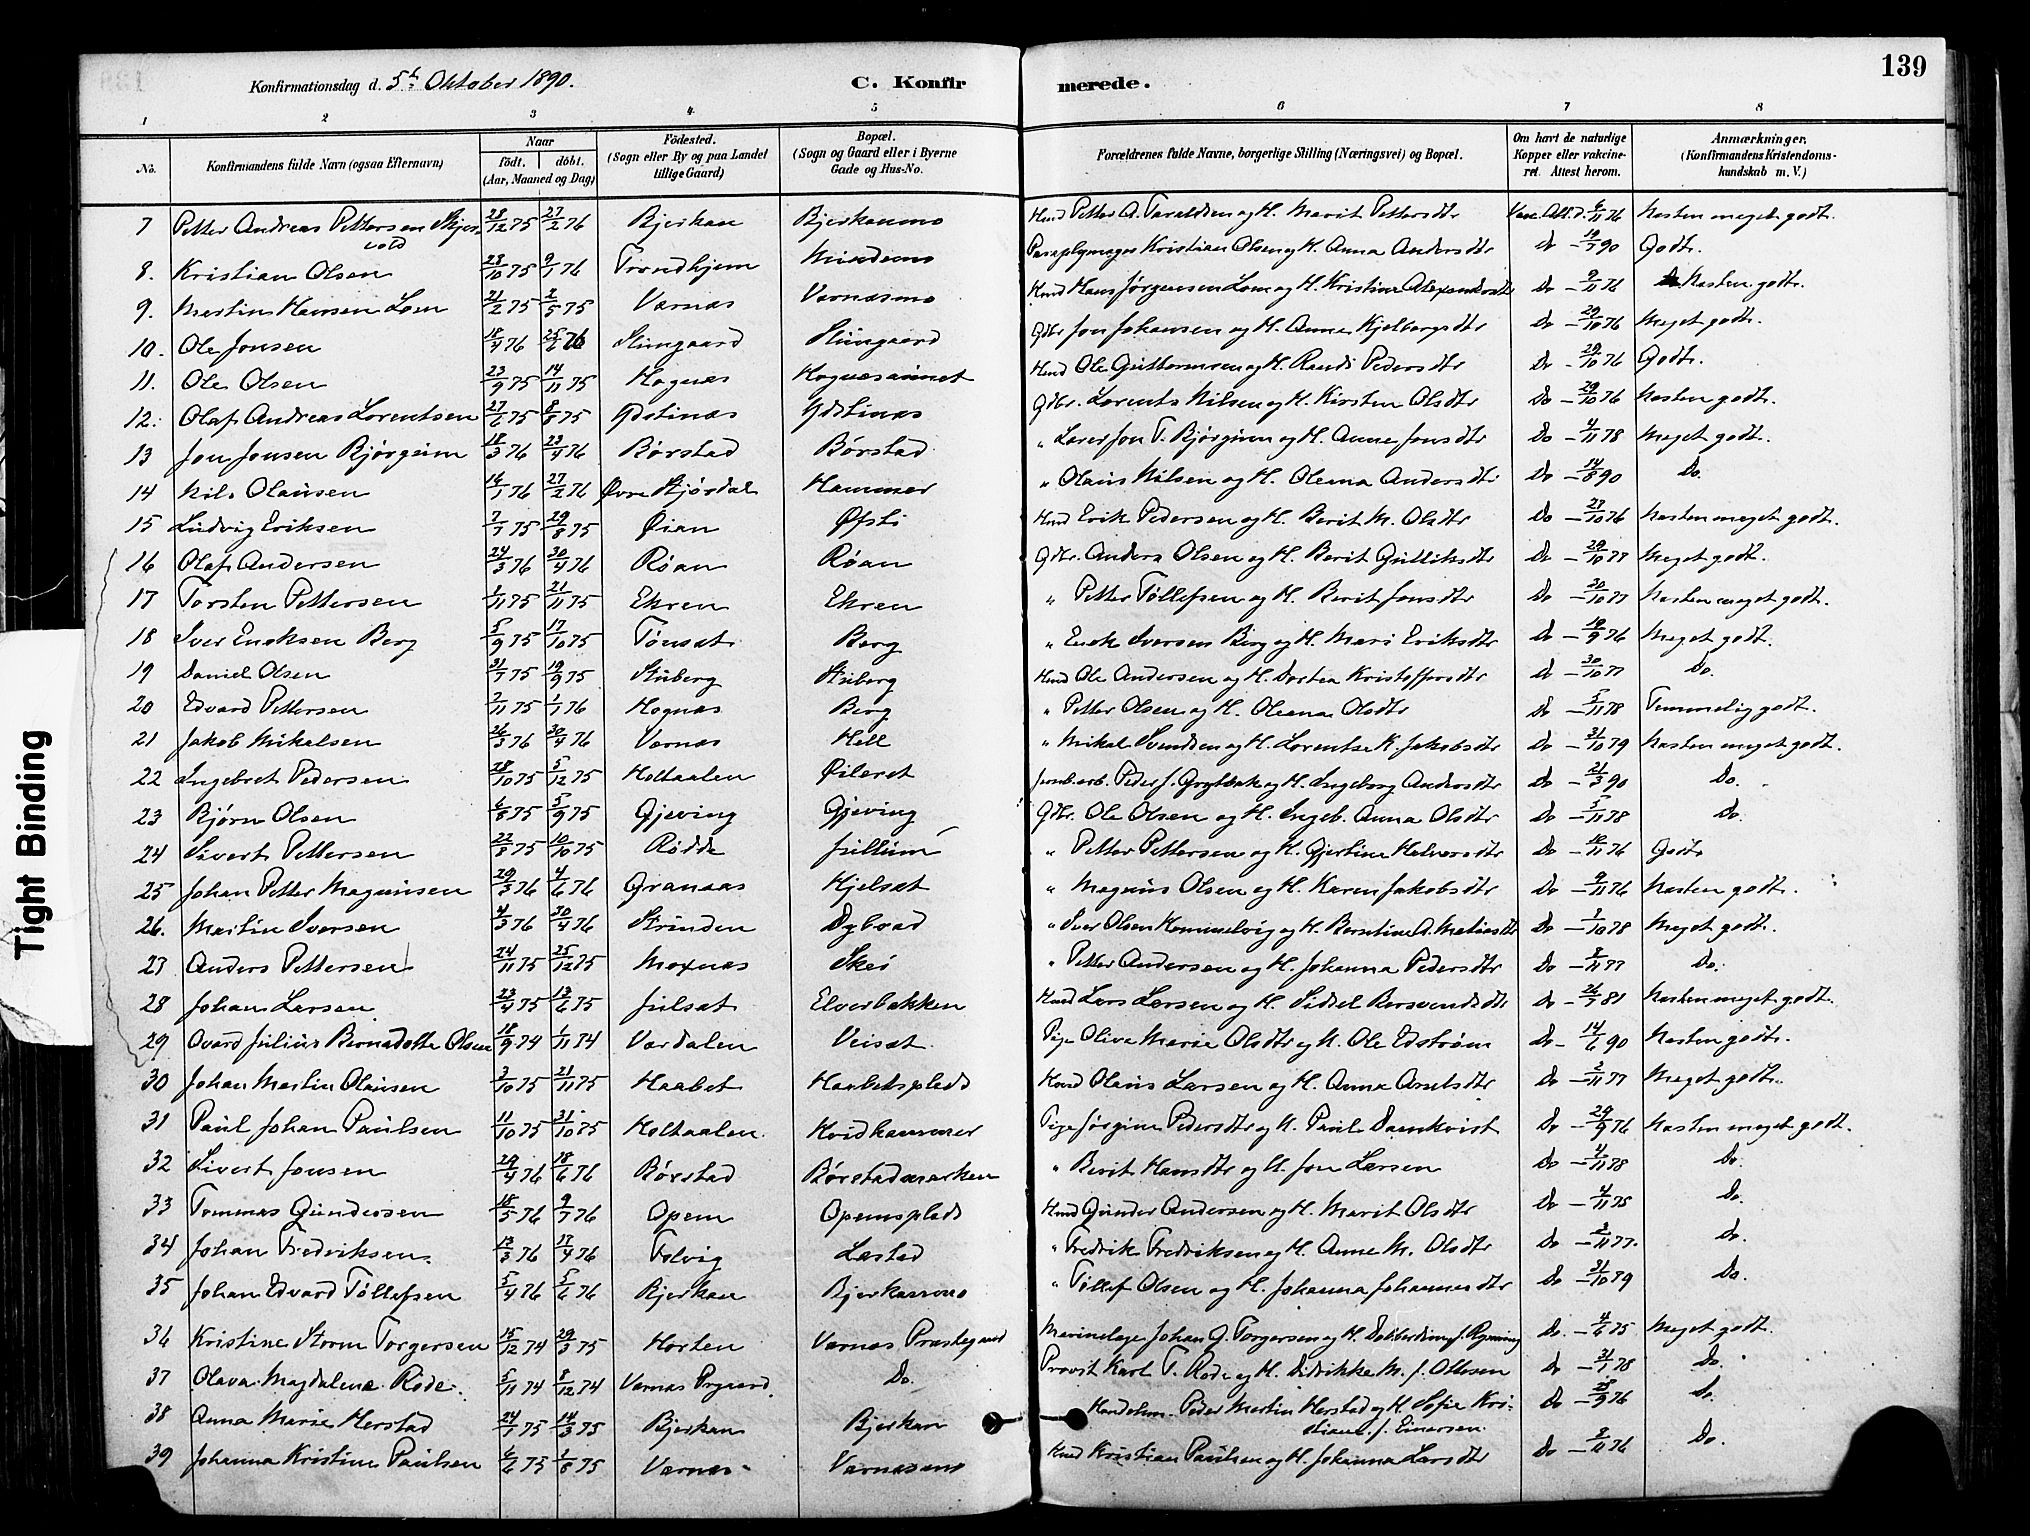 139
Konfirmationsdag d. 5t Oktober 1890.
C. Konfirmerede.
1 2 3 4 5 6 7 8
No. Konfirmandens fulde Navn (ogsaa Efternavn) Naar födt. döbt. (Aar, Maaned og Dag) Födested. (Sogn eller By og paa Landet tillige Gaard) Bopæl. (Sogn og Gaard eller i Byerne Gade og Hus-No. Forældrenes fulde Navne, borgerlige Stilling (Næringsvei) og Bopæl. Om havt de naturlige Kopper eller vakcineret. Attest herom. Anmærkninger. (Konfirmandens Kristendomskundskab m. V.)
7 Petter Andreas Pettersen Skjervold 28/12 75 27/2 76 Bjerkan Bjerkanmo Hmd Petter A. Taraldsen og H. Marit Pettersdtr Vacc. Att. d. 6/11 76 Næsten meget godt.
8. Kristian Olsen 23/10 75 9/1 76 Trondhjem Mindemo Paraplymager Kristian Olsen og H. Anna Andersdtr Do – 19/7 90 Godt.
9. Martin Hansen Loen 21/2 75 2/5 75 Værnæs Værnæsmo Hmd Hans Jørgensen Loen og H. Kristine Do – 9/11 76 Næsten godt.
10. Ole Jonsen 18/4 76 25/6 76 Gdbr Jon Johansen og H. Anne Kjelbergsdtr Do – 29/10 76 Meget godt.
11. Ole Olsen 23/9 75 14/11 75 Hognæs Hmd Ole Guttormsen og H. Randi Pedersdtr Do – 29/10 76 Godt.
12. Olaf Andreas Lorentsen 27/6 75 8/8 75 Ydstinæs Ydstinæs Gdbr. Lorents Nilsen og H. Kirsten Olsdtr Do – 29/10 76 Næsten godt.
13 Jon Jonsen Bjørgum 18/3 76 23/4 76 Børstad Børstad " Lærer Jon T. Bjørgum og H. Anne Jonsdtr Do – 4/11 78 Meget godt.
14 Nils Olausen 14/1 76 27/2 76 Øvre Stjørdal Hammer " Olaus Nilsen og H. Olena Andersdtr Do – 14/8 90 Do.
15 Ludvig Eriksen 7/7 75 29/8 75 Øian Øfsti Hmd Erik Pedersen og H. Berit M. Olsdtr Do – 23/10 76 Næsten meget godt.
16 Olaf Andersen 24/3 76 30/4 76 Røan Røan Gdbr. Anders Olsen og H. Berit Gulliksdtr Do – 29/10 77 Meget godt.
17 Torsten Pettersen 1/11 75 21/11 75 Ekren Ekren " Petter Tøllefsen og H. Berit Jonsdtr Do – 30/10 77 Næsten meget godt.
18 Iver Enoksen Berg 5/9 75 17/10 75 Tønsat Berg " Enok Iversen Berg og H. Mari Eriksdtr Do – 19/9 76 Meget godt.
19 Daniel Olsen 31/7 75 19/9 75 Stuberg Stuberg Hmd Ole Andersen og H. Dortea Kristoffersdtr Do – 30/10 77 Do.
20 Edvard Pettersen 2/11 75 1/1 76 Hognæs Berg " Petter Olsen og H. Olena Olsdtr Do – 5/11 78 Temmelig godt.
21 Jakob Mikalsen 26/3 76 30/4 76 Værnæs Hell " Mikal Svendsen og H. Lorentse K. Jakobsdtr Do – 31/10 79 Næsten meget godt.
22 Ingebret Pedersen 28/10 75 5/12 75 Holtaalen Øiløret Jernb.arb. Peder J. og H. Ingeborg Andersdtr Do – 21/3 90 Do.
23 Bjørn Olsen 6/8 75 5/9 75 Gjeving Gjeving Gdbr. Ole Olsen og H. Ingeb. Anna Olsdtr Do – 5/11 78 Do.
24 Sivert Pettersen 22/8 75 10/10 75 Rødde Jullum " Petter Pettersen og H. Gjertine Halvorsdtr Do – 12/11 76 Godt
25 Johan Petter Magnusen 29/3 76 4/6 76 Granaas Hjelsæt " Magnus Olsen og H. Karen Jakobsdtr Do – 9/11 76 Næsten godt.
26. Martin Iversen 4/3 76 30/4 76 Strinden Dybvad " Iver Olsen Hommelvig og H. Berntine A. Do – 1/10 78 Meget godt.
27 Anders Pettersen 24/11 75 25/12 75 Moxnæs Skei " Petter Andersen og H. Johanna Pedersdtr Do – 8/11 77 Do.
28 Johan Larsen 23/4 75 13/6 75 Julsæt Elverbakken Hmd Lars Larsen og H. Sidsel Do – 26/7 81 Næsten meget godt.
29 Ovard Julius Bernadotte Olsen 18/9 74 1/11 74 Værdalen Veisæt. Pige Oliva Marie Olsdtr og U. Ole Edstrøm Do – 14/6 90 Næsten godt.
30 Johan Martin Olausen 3/10 75 21/11 75 Haabet Haabetsplads Hmd Olaus Larsen og H. Anna Do – 2/11 77 Meget godt.
31 Paul Johan Paulsen 11/10 75 31/10 75 Holtaalen Pige Jørgine Pedersdtr og U. Paul Damkvist Do – 29/9 76 Næsten meget godt.
32 Sivert Jonsen 29/4 76 18/6 76 Børstad Børstadmarken " Berit Hansdtr og U. Jon Larsen Do – 4/11 78 Do.
33 Tommas Gundersen 18/5 76 9/7 76 Opem Opemsplads Hmd Gunder Andersen og H. Marit Olsdtr Do – 4/11 78 Do.
34 Johan Fredriksen. 13/3 76 17/4 76 Læstad " Fredrik Fredriksen og H. Anne M. Olsdtr Do – 2/11 77. Do.
35 Johan Edvard Tøllefsen 5/4 76 5/6 76 Bjerkan Bjerkanmo " Tøllef Olsen og H. Johanna Johannesdtr Do – 31/10 79 Do.
36 Kristine Storm Torgersen 15/12 74 29/3 75 Horten Værnæs Præstegaard Marinelæge Johan G. Torgersen og H. Do. – 4/6 75 Meget godt.
37 Olava Magdalena Rode. 5/11 74 8/12 74 Værnæs Prgaard. Do. Provst Karl T. Rode og H. Didrikke M. f. Ottesen Do – 31/1 78 Do.
38 Anna Marie Herstad 24/1 75 14/3 75 Bjerkan Bjerkan Handelsm. Peder Martin Herstad og H. Sofie Kristiane f. Einersen. Do – 25/9 76 Do.
39 Johanna Kristine Paulsen 6/6 75 1/8 75 Værnæs Værnæsmo Hmd Kristian Paulsen og H. Johanna Larsdtr Do – 8/11 76 Do.
Tight Binding